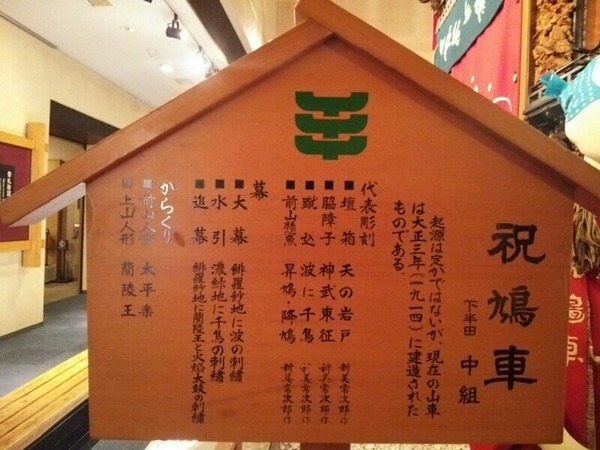 祝鳩車
下半田 中組
起源は定かではないが、現在の山車
は大正三年(一九一四)に建造された
ものである。
代表彫刻
■壇箱 天の岩戸 新美常次郎作
■脇障子 神武東征 新美常次郎作
■蹴込 波に千鳥 新美常次郎作
■前山懸魚 昇鳩・降鳩 新美常次郎作
幕
■大幕 緋羅紗地に波の刺繍
■水引 濃緑地に千鳥の刺繍
■追幕 緋羅紗地に蘭陵王と火焔太鼓の刺繍
からくり
■前山人形 太平楽
■上山人形 蘭陵王